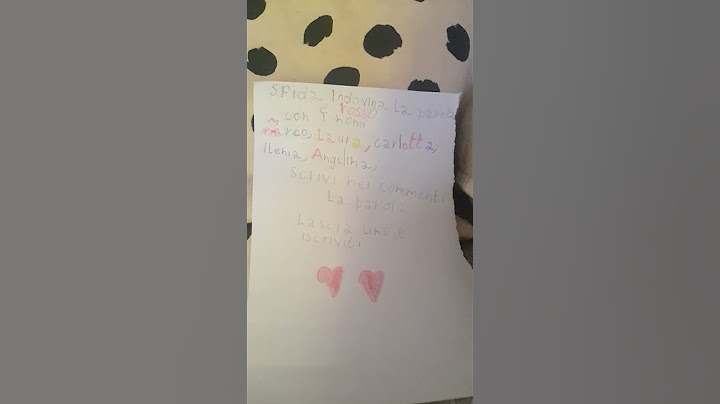 SFida Indovina La parola
è rosso
con i nomi
marco, Laura, carlotta,
ilenia, Angelina,
scrivi nei commenti
La parola
Lascia like e
iscriviti